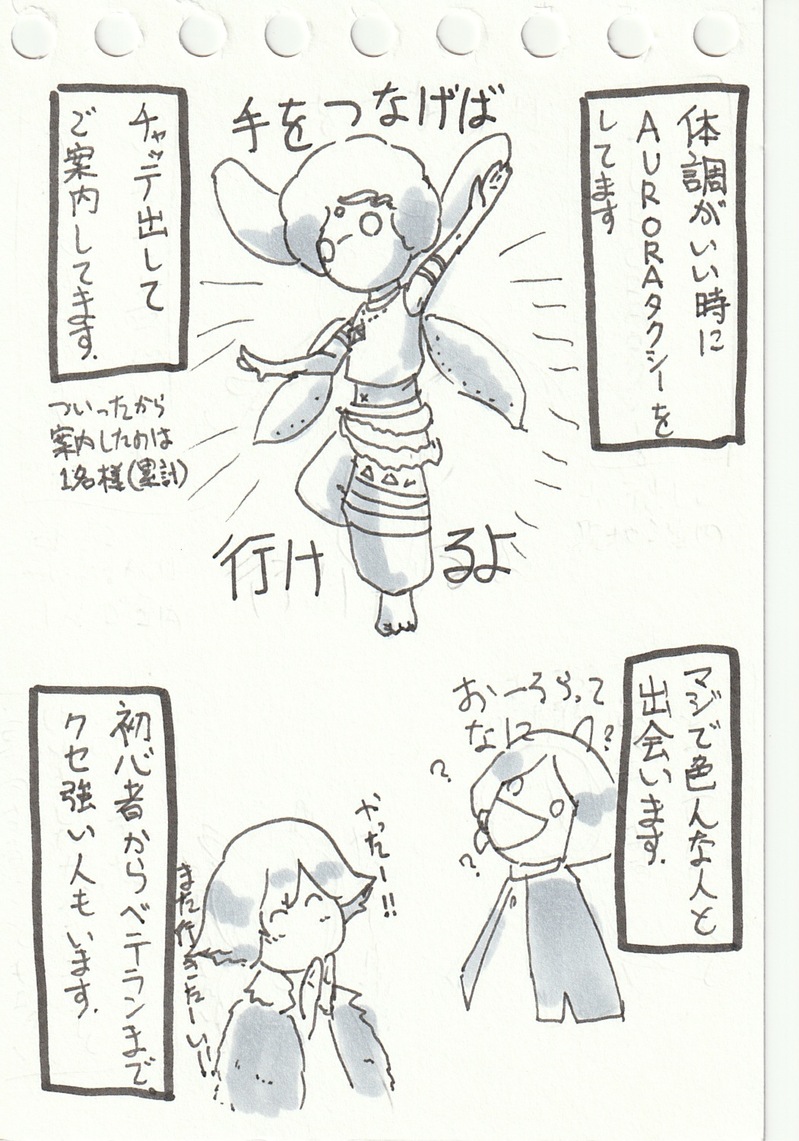 体調がいい時に
AURORAタクシーを
してます
手をつなげば
行けるよ
チャッテ出して
ご案内してます.
ついったから
案内したのは
1名様(累計)
マジで色んな人と
出会います.
おーろらって
なに?
?
?
やったー!!
また行きたーい!!
初心者からベテランまで.
クセ強い人もいます.